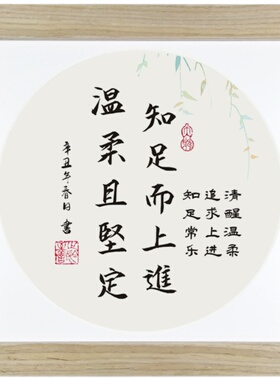 清醒温柔
追求上进
知足常乐
知足而上進
溫柔且堅定
辛丑年春月 書